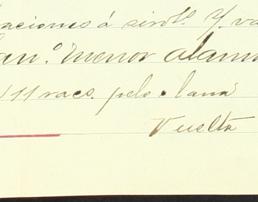 aciones á sirolˢ. Y va
an.º menor alam
111 racs. pelo. lana
Vuelta